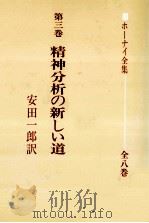 ホーナイ全集
全八巻
第三巻
精神分析の新しい道
安田一郎訳